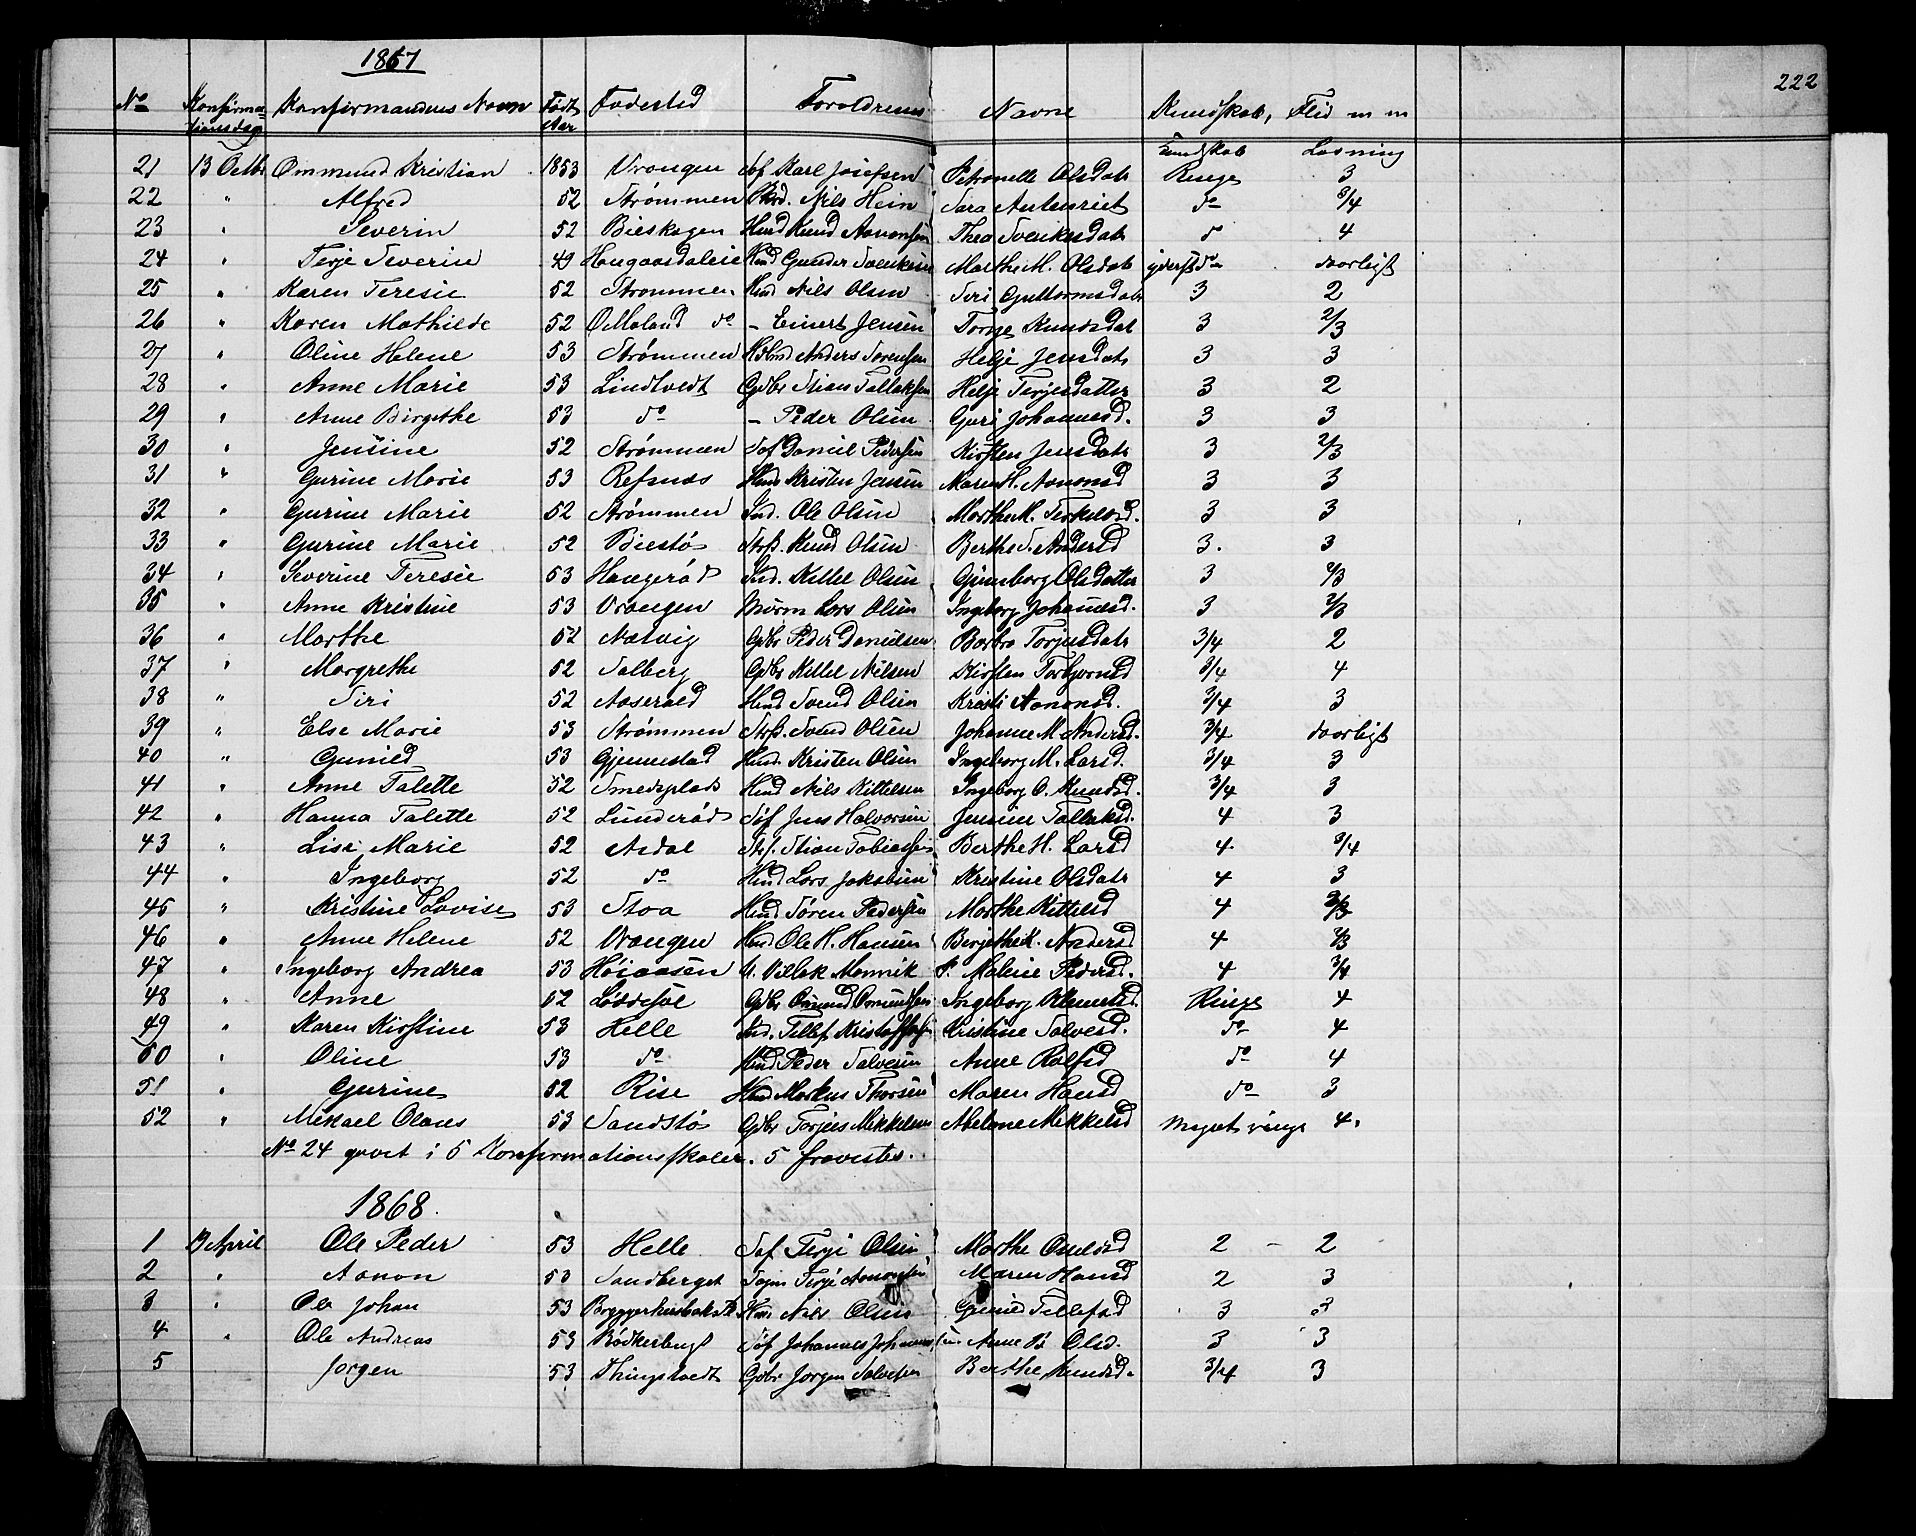 1867
222
No Konfirma- Konfirmandens Navn Født Fødested Forældrenes Navne Kundskab, Flid m m
tionsdag Aar
Kundskab Læsning
21 13 Octbr Ommund Kristian 1853 Vrengen Søf Karl Josefsen Petronelle Olsdatr Ringe 3
22 " Alfred 52 Strømmen Nils Hein Sara 3/4
23 " Severin 52 Bieskogen Hmd Knud Aanonsen Thea do 4
24 " Terje Severin 49 Hmd Gunder Marthe M. Olsdatr yderst do daarligt
25 " Karen Teresie 52 Strømmen Hmd Nils Olsen Siri Guttormsdatr 3 2
26 " Karen Mathilde 52 Ø Moland do - Einert Jensen Torge Knudsdat 3 2/3
27 " Oline Helene 53 Strømmen Anders Sørensen Helje Jensdatr 3 3
28 " Anne Marie 53 Lindtvedt Gdbr Stian Tallaksen Helje Terjesdatter 3 2
29 " Anne Birgithe 53 do - Peder Olsen Guri Johannesd. 3 3
30 " Jensine 52 Strømmen Søf Daniel Pedersen Kirsten Jensdatr 3 2/3
31 " Gurine Marie 53 Refsnæs Hmd Kristen Jensen Maren H. Aanonsd 3 3
32 " Gurine Marie 52 Strømmen Ind. Ole Olsen Marthe M. Terkelsd. 3 3
33 " Gurine Marie 52 Biestø Strß. Knud Olsen Berthe S. Andersd 3. 3
34 " Severine Teresie 53 Haugerød Ind. Kittel Olsen Gunborg Olsdatter 3 2/3
35 " Anne Kristine 53 Vrengen Lars Olsen Ingeborg Johannesd. 3 2/3
36 " Marthe 52 Natvig Gdbr Peder Danielsen Barbro Torjusdatr 3/4 2
37 " Margrethe 52 Salberg Gdbr Kittel Nilsen Kirsten Torbjørnsd 3/4 4
38 " Siri 52 Hmd Svend Olsen Kristi Aanonsd. 3/4 3
39 " Else Marie 53 Strømmen Strß. Svend Olsen Johanne M. Andersd. 3/4 daarligt
40 " Gunild 53 Gjennestad Hmd. Kristen Olsen Ingeborg M. Larsd. 3/4 3
41 " Anne Talette 52 Smedsplads Hmd Nils Kittelsen Ingeborg O. Knudsd. 3/4 3
42 " Hanna Talette 52 Lunderød Søf Jens Halvorsen Jensine Tallaksd. 4 3
43 " Lise Marie 52 Asdal Stian Tobiassen Berthe H. Larsd 4 3/4
44 " Ingeborg 52 do Hmd Lars Jakobsen Kristine Olsdatr 4 3
45 " Kristine Lovise 53 Stoa Hmd Søren Pedersen Marthe Kittelsd 4 2/3
46 " Anne Helene 52 Vrængen Hmd Ole H. Hansen Berjethe K. Andersd 4 2/3
47 " Ingeborg Andrea 53 Høiaasen U. Villak Monnik P. Malene Pedersd. 4 3/4
48 " Anne 52 Løddesøl Gdbr Omund Omundsen Ingeborg Ringe 4
49 " Karen Kirstine 53 Helle Ind. Tellef Kristoffersen Kristine Salvesd. do 4
50 " Oline 53 do Hmd Peder Salvesen Anne Rolfsd do 4
51 " Gurine 52 Rise Hmd Markus Thorsen Maren Hansd do 3
52 " Mikael Olaus 53 Sandstø Gdbr Torjus Mikkelsen Abelone Mikkelsd Meget ringe 4.
No 24 gaaet i 5 Konfirmationsskoler. 5 fraviistes.
1868.
1 13 April Ole Peder 53 Helle Søf Terje Olsen Marthe 2 - 2
2 " Aanon 53 Sandberget Terje Aanonsen Maren Hansd 2 3
3 " Ole Johan 53 Hmd Nils Olsen Gunild Tellefsd 3 3
4 " Ole Andreas 53 Bødkerbugt Søf Johannes Johannessen Anne B Olsd. 3 3
5 Jørgen 53 Thingstvedt Gdbr Jørgen Salvesen Berthe Knudsd. 3/4 3